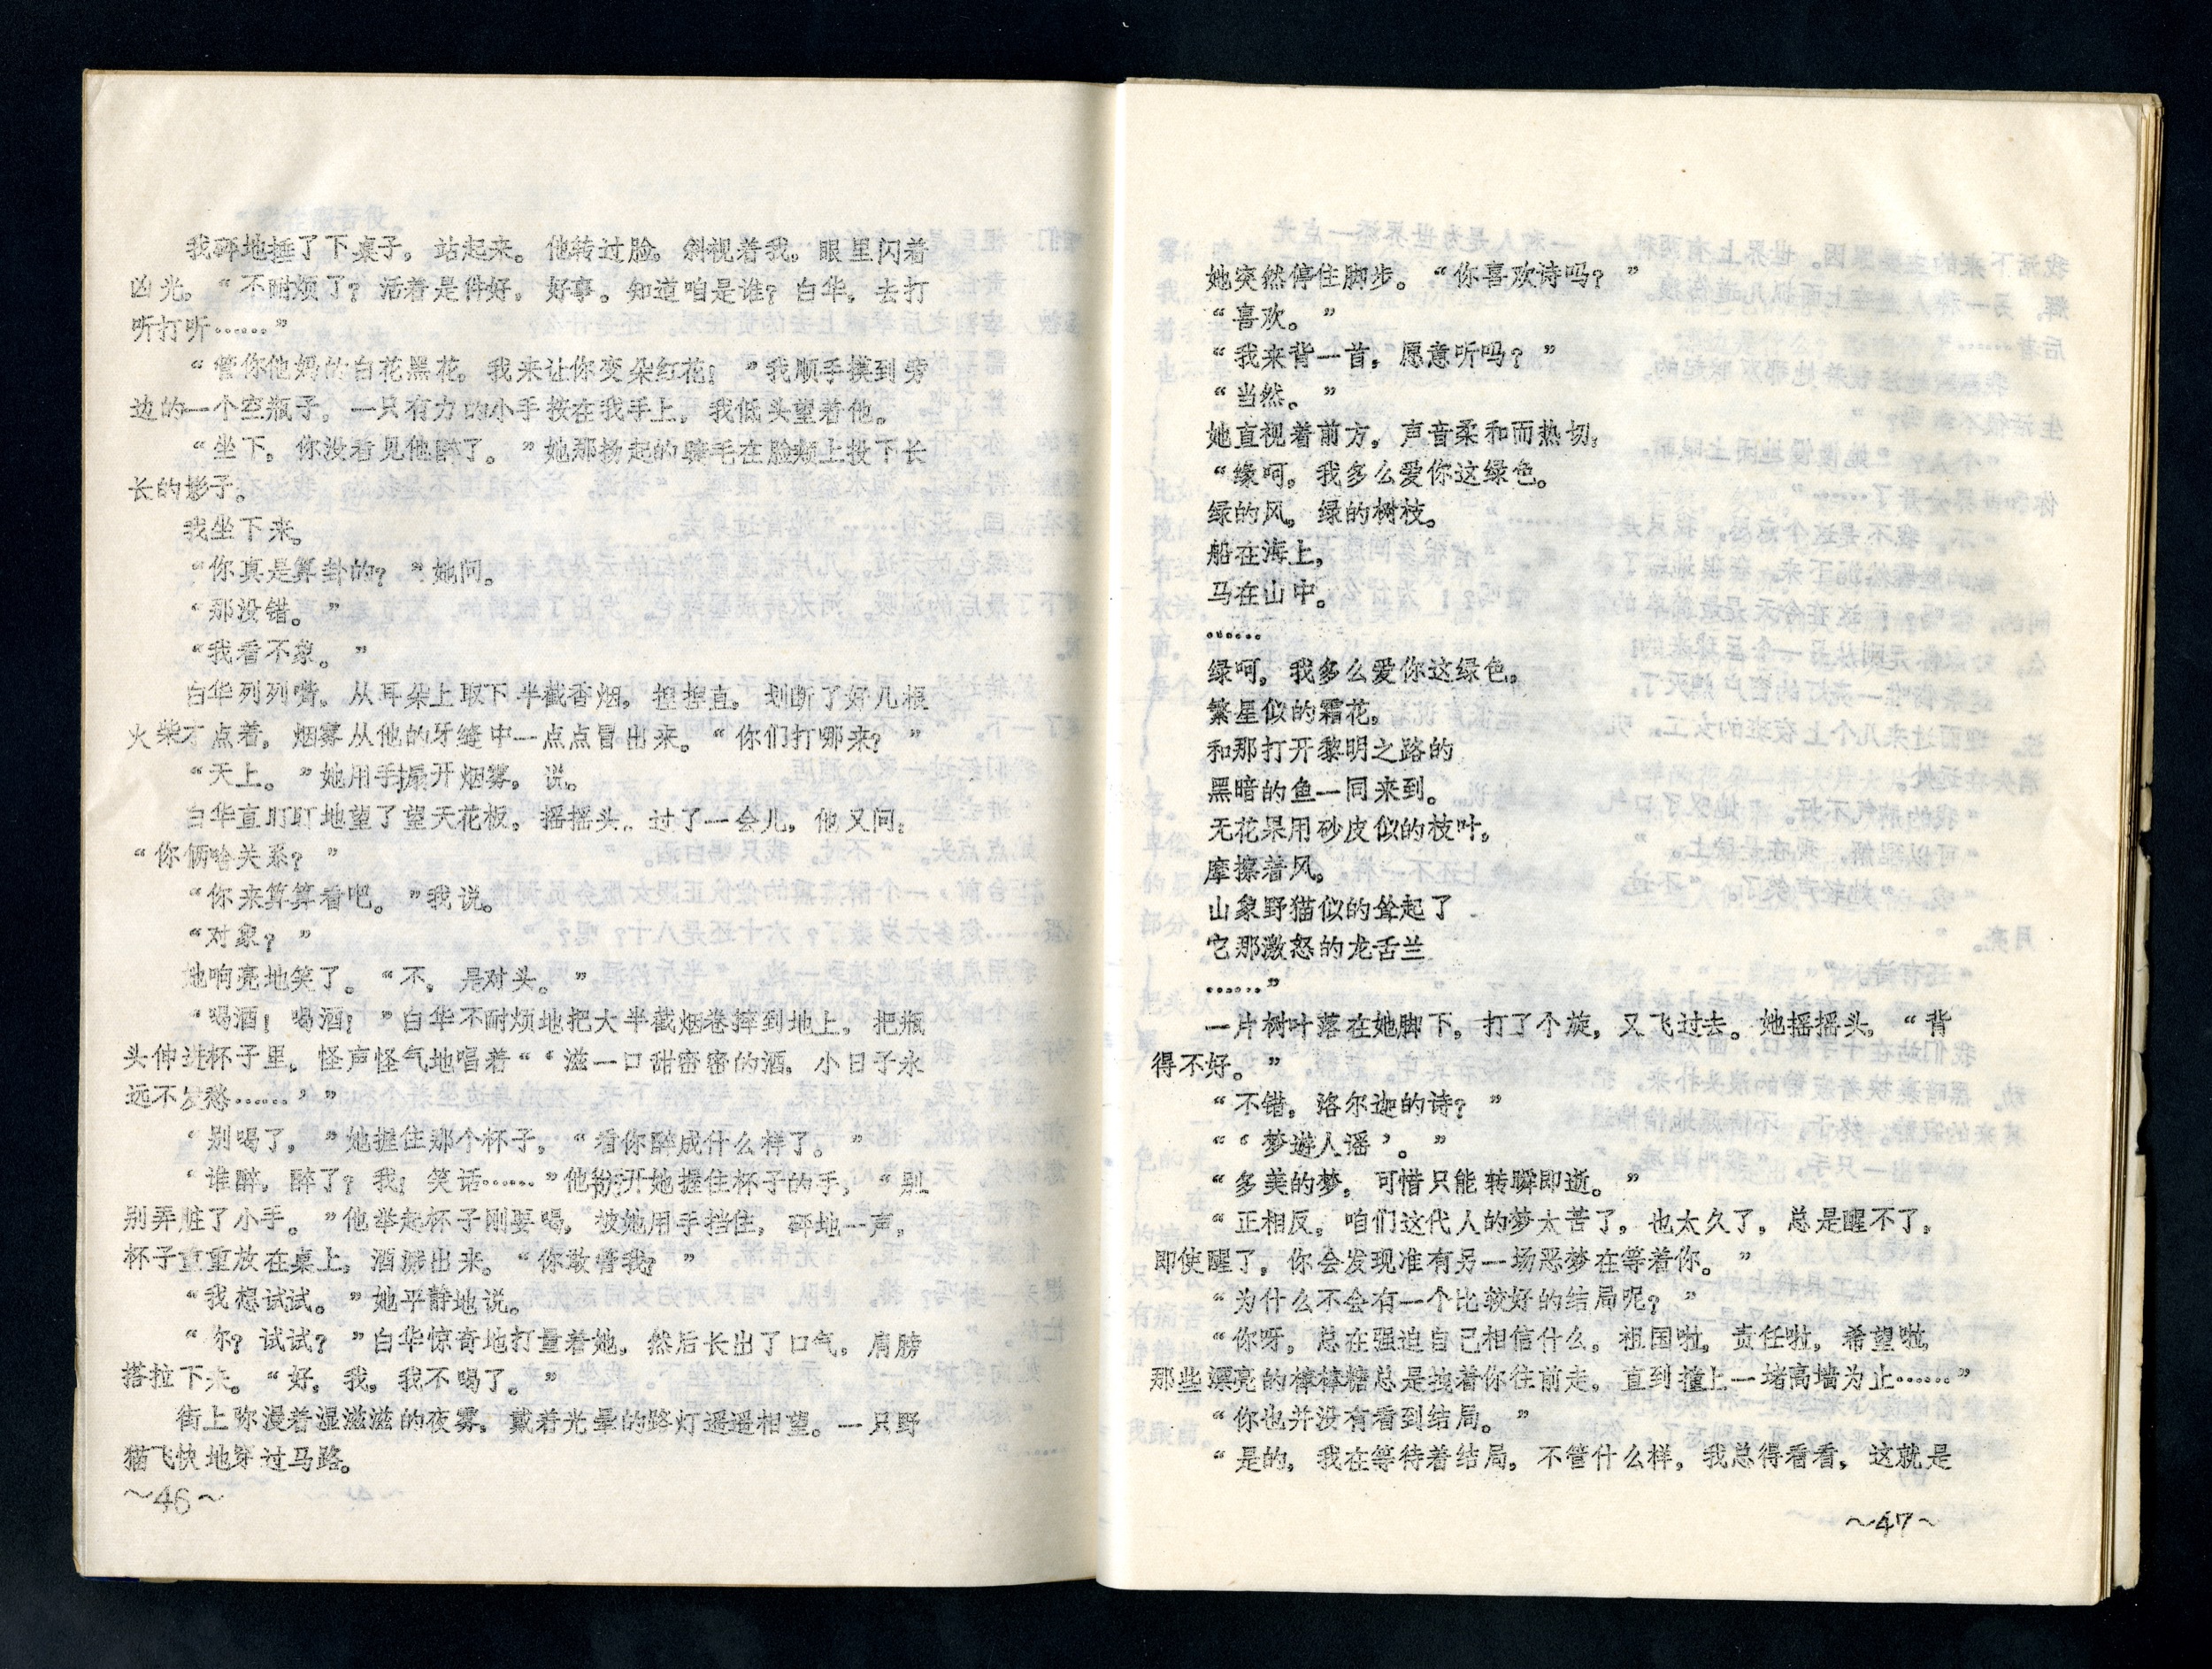 我砰地捶了下桌子，站起来。他转过脸，斜视着我，眼里闪着
凶光，“不耐烦了？活着是件好，好事。知道咱是谁？白华，去打
听打听……”
“管你他妈的白花黑花，我来让你变朵红花！”我顺手摸到旁
边的一个空瓶子，一只有力的小手按在我手上，我低头望着他。
“坐下，你没看见他醉了。”她那扬起的睫毛在脸颊上投下长
长的影子。
我坐下来。
“你真是算卦的？”她问。
“那没错。”
“我看不象。”
白华列列嘴，从耳朵上取下半截香烟，捏捏直，划断了好几根
火柴才点着，烟雾从他的牙缝中一点点冒出来。“你们打哪来？”
“天上。”她用手搧开烟雾，说。
白华直盯盯地望了望天花板，摇摇头，过了一会儿，他又问：
“你俩啥关系？”
“你来算算看吧。”我说。
“对象？”
她响亮地笑了。“不，是对头。”
“喝酒！喝酒！”白华不耐烦地把大半截烟卷摔到地上，把瓶
头伸进杯子里，怪声怪气地唱着“‘滋一口甜密密的酒，小日子永
远不发愁……’”
“别喝了，”她握住那个杯子，“看你醉成什么样了。”
‘谁醉，醉了？我！笑话……”他扮开她握住杯子的手，“别，
别弄脏了小手。”他举起杯子刚要喝，被她用手挡住，砰地一声，
杯子重重放在桌上，酒溅出来。“你敢管我？”
“我想试试。”她平静地说。
“你？试试？”白华惊奇地打量着她，然后长出了口气，肩膀
搭拉下来。“好，我，我不喝了。”
街上弥漫着湿滋滋的夜雾，戴着光晕的路灯遥遥相望。一只野
猫飞快地穿过马路。
～46～
她突然停住脚步。“你喜欢诗吗？”
“喜欢。”
“我来背一首，愿意听吗？”
“当然。”
她直视着前方，声音柔和而热切：
“缘呵，我多么爱你这绿色。
绿的风，绿的树枝。
船在海上，
马在山中。
……
绿呵，我多么爱你这绿色，
繁星似的霜花，
和那打开黎明之路的
黑暗的鱼一同来到。
无花果用砂皮似的枝叶，
摩擦着风，
山象野猫似的耸起了
它那激怒的龙舌兰
……”
一片树叶落在她脚下，打了个旋，又飞过去。她摇摇头，“背
得不好。”
“不错，洛尔迦的诗？”
“‘梦遊人谣’。”
“多美的梦，可惜只能转瞬即逝。”
“正相反，咱们这代人的梦太苦了，也太久了，总是醒不了，
即使醒了，你会发现准有另一场恶梦在等着你。”
“为什么不会有一个比较好的结局呢？”
“你呀，总在强迫自己相信什么，祖国啦，责任啦，希望啦，
那些漂亮的棒棒糖总是拽着你往前走，直到撞上一堵高墙为止……”
“你也并没有看到结局。”
“是的，我在等待着结局，不管什么样，我总得看看，这就是
～47～